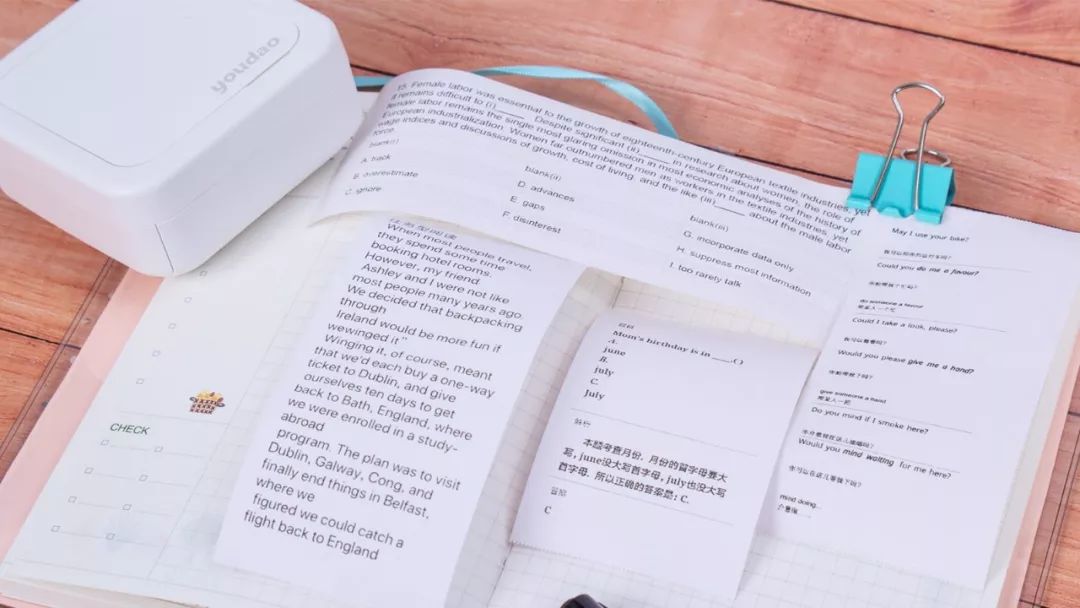 youdao
15. Female labor was essential to the growth of eighteenth-century European textile industries, yet
it remains difficult to (i)_____. Despite significant (ii)_____ in research about women, the role of
female labor remains the single most glaring omission in most economic analyses of the history of
European industrialization. Women far outnumbered men as workers in the textile industries, yet
wage indices and discussions of growth, cost of living, and the like (iii)_____ about the male labor
force.
blank(i)
A. track
B. overestimate
C. ignore
blank(ii)
D. advances
E. gaps
F. disinterest
blank(iii)
G. incorporate data only
H. suppress most information
I. too rarely talk
When most people travel,
they spend some time
booking hotel rooms.
However, my friend
Ashley and I were not like
most people many years ago.
We decided that backpacking
through
Ireland would be more fun if
wewinged it”
Winging it, of course, meant
that we'd each buy a one-way
ticket to Dublin, and give
ourselves ten days to get
back to Bath, England, where
we were enrolled in a study-
abroad
program. The plan was to visit
Dublin, Galway, Cong, and
finally end things in Belfast,
where we
figured we could catch a
flight back to England
CHECK
题目
Mum's birthday is in ____.( )
A.
june
B.
july
C.
July
解析
本题考查月份，月份的首字母要大
写，june没大写首字母，july也没大写
首字母，所以正确的答案是：C.
答案
C
May I use your bike?
Could you do me a favour?
你能帮我个忙吗？
do someone a favour
帮某人一个忙
Could I take a look, please?
我可以看看吗？
Would you please give me a hand?
你能帮我下吗？
give someone a hand
帮某人一把
Do you mind if I smoke here?
Would you mind waiting for me here?
你可以在这儿等我下吗？
mind doing...
介意做......